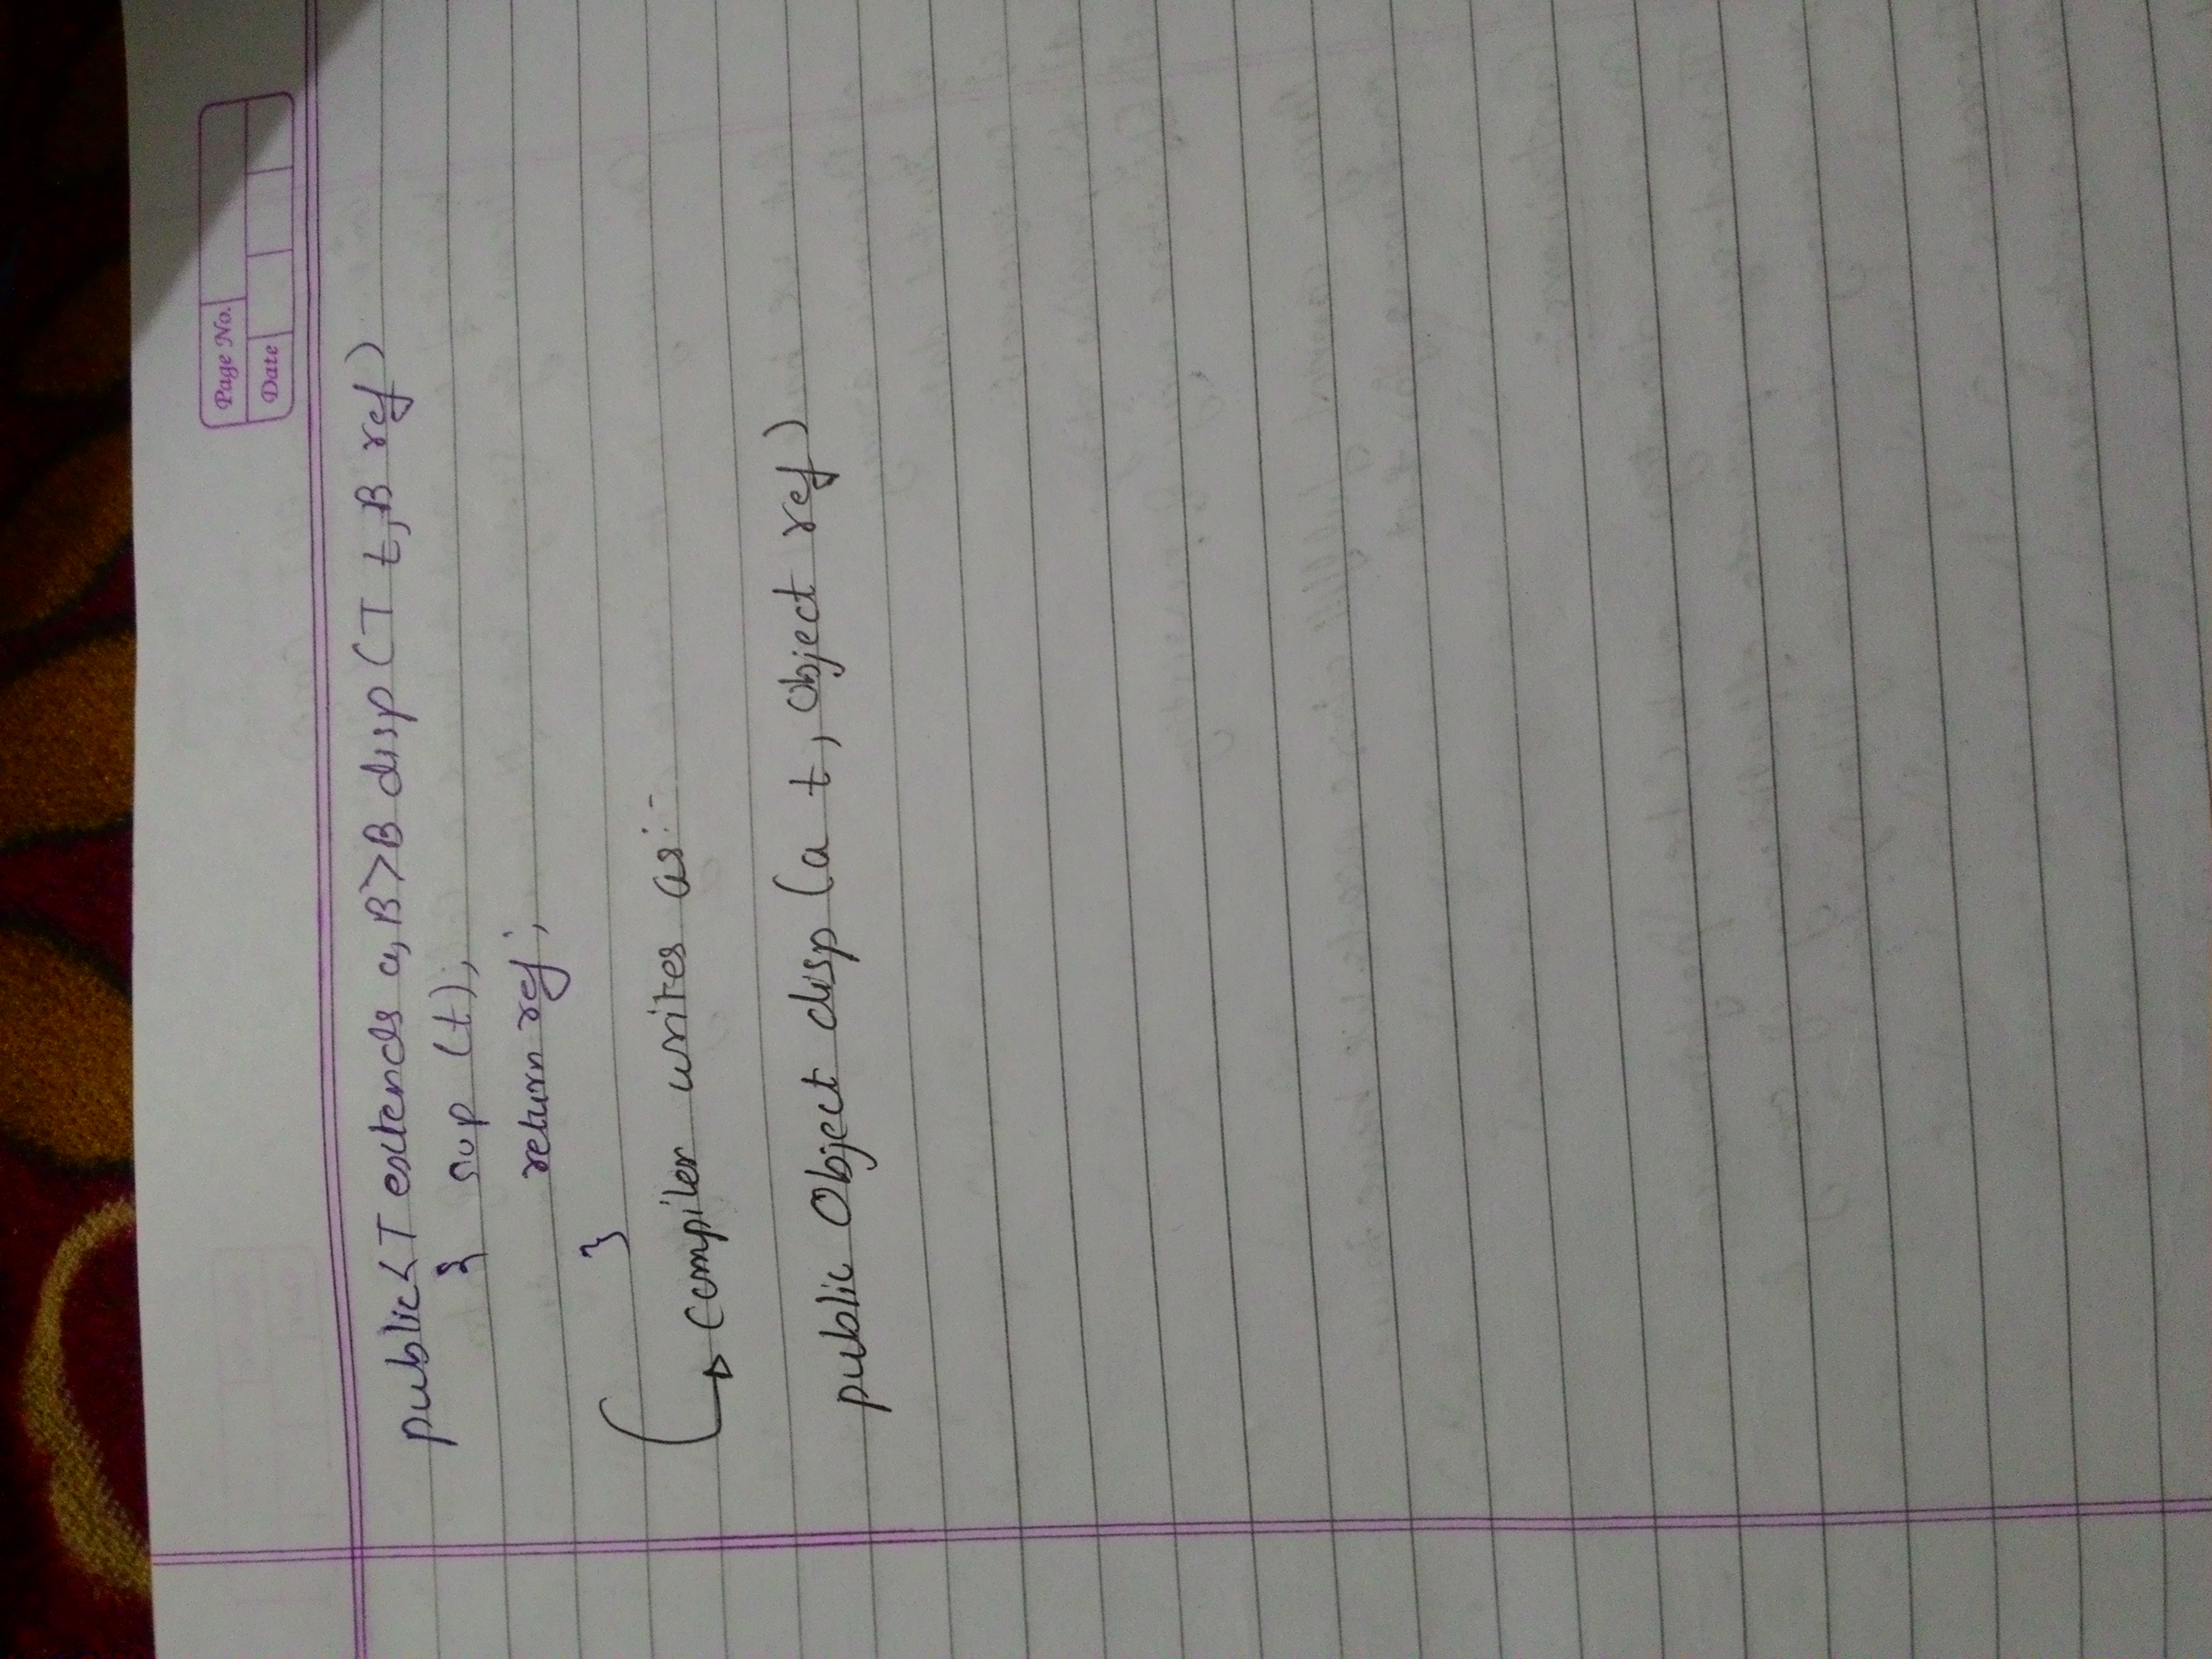 Page No.
Date
public<T extends a,B>B disp(T t,B ref)
{ sup (t);
return ref;
}
compiler writes as:-
public Object disp(a t, Object ref)